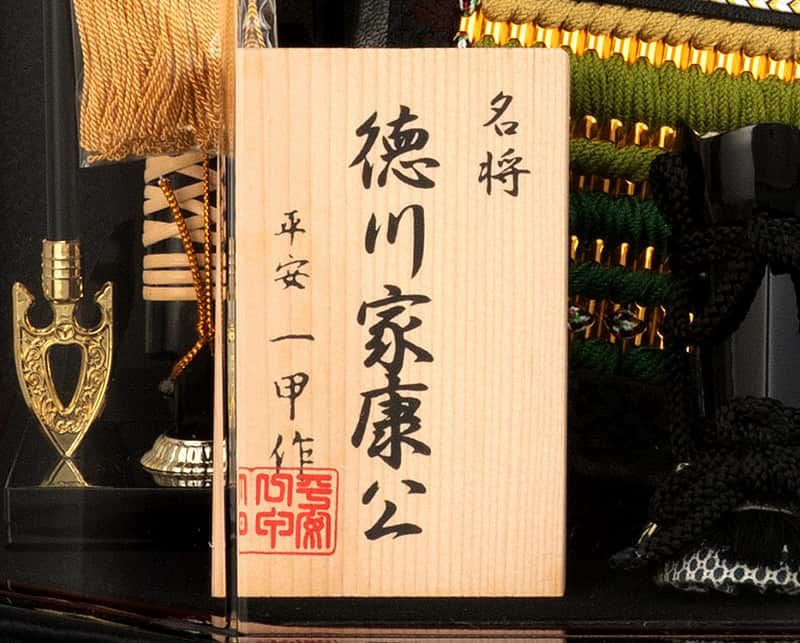 名将
徳川家康公
平安 一甲作